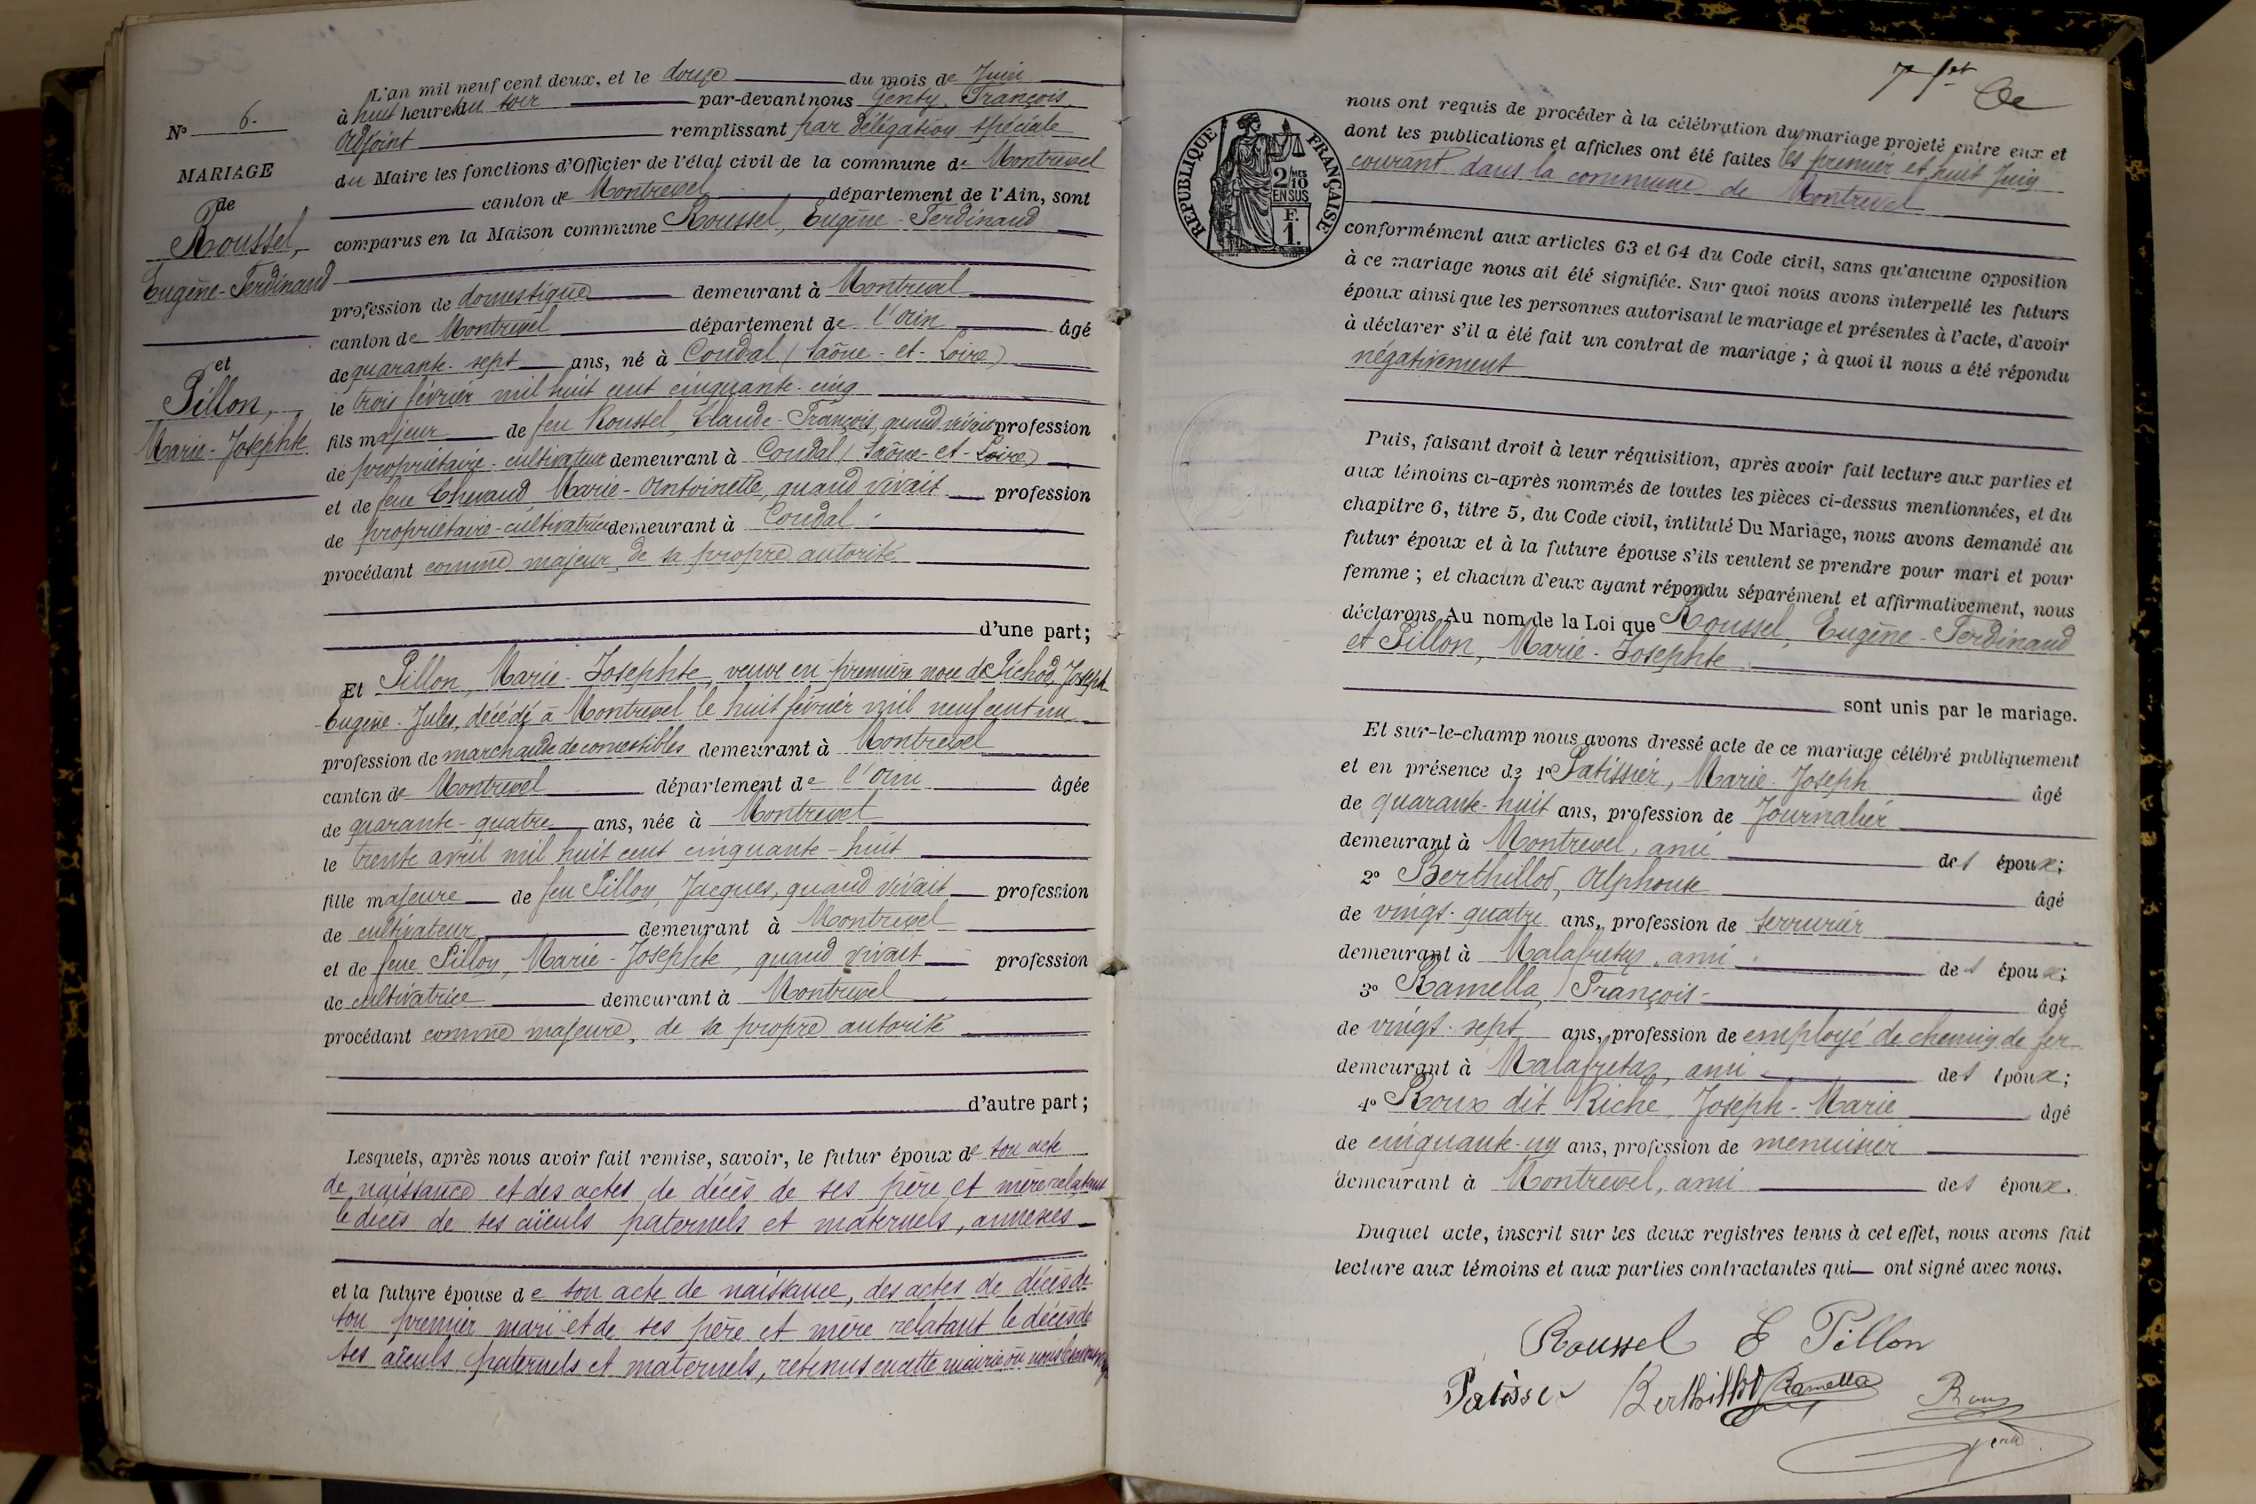 L'an mil neuf cent deux, et le douze du mois de Juin
à huit heures du soir par-devant nous Genty, François,
Adjoint remplissant par délégation spéciale
du Maire les fonctions d'Officier de l'état civil de la commune de Montrevel
canton de Montrevel département de l'Ain, sont
comparus en la Maison commune Roussel, Eugène-Ferdinand
profession de domestique demeurant à Montrevel
canton de Montrevel département de l'Ain âgé
de quarante-sept ans, né à Condal (Saône-et-Loire)
le trois février mil huit cent cinquante-cinq
fils majeur de feu Roussel, Claude-François, quand vivait profession
de propriétaire-cultivateur demeurant à Condal (Saône-et-Loire)
et de feue Chevaud Marie-Antoinette, quand vivait profession
de propriétaire-cultivatrice demeurant à Condal
procédant comme majeur, de sa propre autorité
d'une part;
Et Pillon, Marie-Josephte, veuve en première noce de Pichod, Joseph
Eugène-Jules, décédé à Montrevel le huit février mil neuf cent un
profession de marchande de comestibles demeurant à Montrevel
canton de Montrevel département de l'Ain âgée
de quarante-quatre ans, née à Montrevel
le trente avril mil huit cent cinquante-huit
fille majeure de feu Pillon, Jacques, quand vivait profession
de cultivateur demeurant à Montrevel
et de feue Pillon, Marie-Josephte, quand vivait profession
de cultivatrice demeurant à Montrevel
procédant comme majeure, de sa propre autorité
d'autre part;
Lesquels, après nous avoir fait remise, savoir, le futur époux de son acte
de naissance et des actes de décès de ses père et mère relatant
le décès de ses aïeuls paternels et maternels, annexés
et la future épouse de son acte de naissance, des actes de décès de
son premier mari et de ses père et mère relatant le décès de
ses aïeuls paternels et maternels, retenus en cette mairie où nous
N° 6.
MARIAGE
de
Roussel,
Eugène-Ferdinand
et
Pillon,
Marie-Josephte
7e fet
RÉPUBLIQUE FRANÇAISE
2 MES
10
EN SUS
F.
1.
nous ont requis de procéder à la célébration du mariage projeté entre eux et
dont les publications et affiches ont été faites les premier et huit Juin
courant dans la commune de Montrevel
conformément aux articles 63 et 64 du Code civil, sans qu'aucune opposition
à ce mariage nous ait été signifiée. Sur quoi nous avons interpellé les futurs
époux ainsi que les personnes autorisant le mariage et présentes à l'acte, d'avoir
à déclarer s'il a été fait un contrat de mariage; à quoi il nous a été répondu
négativement
Puis, faisant droit à leur réquisition, après avoir fait lecture aux parties et
aux témoins ci-après nommés de toutes les pièces ci-dessus mentionnées, et du
chapitre 6, titre 5, du Code civil, intitulé Du Mariage, nous avons demandé au
futur époux et à la future épouse s'ils veulent se prendre pour mari et pour
femme; et chacun d'eux ayant répondu séparément et affirmativement, nous
déclarons Au nom de la Loi que Roussel, Eugène-Ferdinand
et Pillon, Marie-Josephte
sont unis par le mariage.
Et sur-le-champ nous avons dressé acte de ce mariage célébré publiquement
et en présence de 1° Patissier, Marie-Joseph âgé
de quarante-huit ans, profession de Journalier
demeurant à Montrevel, ami des époux;
2° Berthillod, Alphonse âgé
de vingt-quatre ans, profession de serrurier
demeurant à Malafretaz, ami des époux;
3° Ramella, François âgé
de vingt-sept ans, profession de employé de chemin de fer
demeurant à Malafretaz, ami des époux;
4° Roux dit Riche, Joseph-Marie âgé
de cinquante-un ans, profession de menuisier
demeurant à Montrevel, ami des époux.
Duquel acte, inscrit sur les deux registres tenus à cet effet, nous avons fait
lecture aux témoins et aux parties contractantes qui ont signé avec nous.
Roussel E Pillon
Patissier Berthillod Ramella Roux